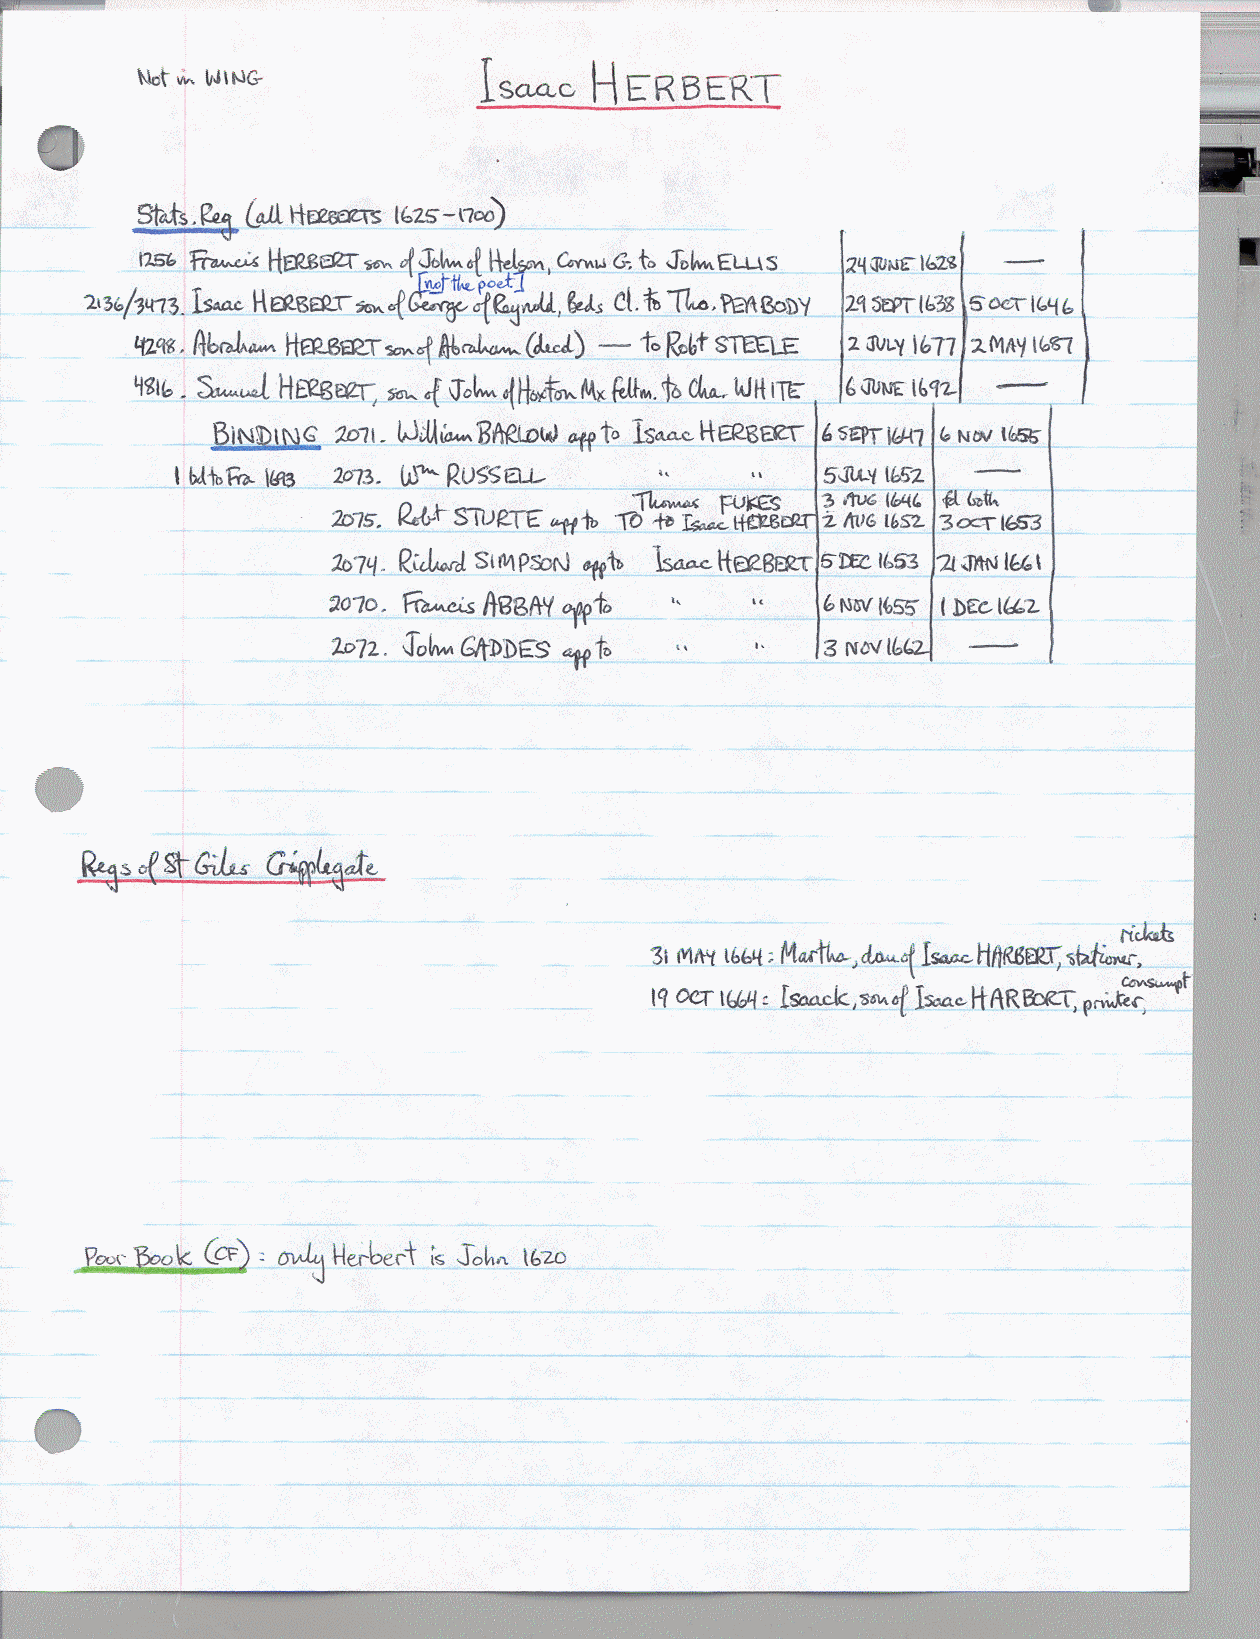 Not in WING
Isaac HERBERT
Stats. Reg (all HERBERTS 1625-1700)
1256 Francis HERBERT son of John of Helson, Cornw G. to John ELLIS 24 JUNE 1628 —
[not the poet]
2136/3473. Isaac HERBERT son of George of Reynold, Beds Cl. to Tho. PEABODY 29 SEPT 1638 5 OCT 1646
4298. Abraham HERBERT son of Abraham (decd) — to Robt STEELE 2 JULY 1677 2 MAY 1687
4816. Samuel HERBERT, son of John of Hoxton Mx feltm. to Cha. WHITE 6 JUNE 1692 —
BINDING 2071. William BARLOW app to Isaac HERBERT 6 SEPT 1647 6 NOV 1655
1 bd to Fra 1693 2073. Wm RUSSELL " " 5 JULY 1652 —
Thomas FUKES 3 AUG 1646 fd both
2075. Robt STURTE app to TO to Isaac HERBERT 2 AUG 1652 3 OCT 1653
2074. Richard SIMPSON app to Isaac HERBERT 5 DEC 1653 21 JAN 1661
2070. Francis ABBAY app to " " 6 NOV 1655 1 DEC 1662
2072. John GADDES app to " " 3 NOV 1662 —
Regs of St Giles Cripplegate
rickets
31 MAY 1664: Martha, dau of Isaac HARBERT, stationer,
consumpt
19 OCT 1664: Isaack, son of Isaac HARBORT, printer,
Poor Book (CF): only Herbert is John 1620